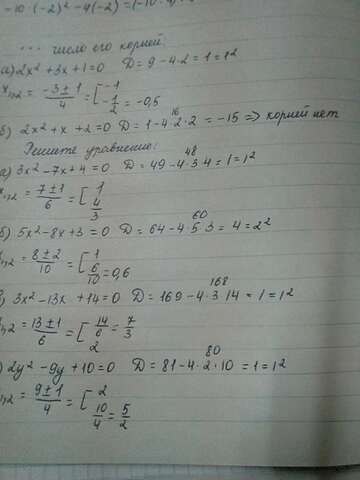 -10·(-2)² - 4(-2) = (-10·4)
... число его корней:
а) 2x² + 3x + 1 = 0 D = 9 - 4·2 = 1 = 1²
x₁,₂ = (-3 ± 1)/4 = [ -1
-1/2 = -0,5
б) 2x² + x + 2 = 0 D = 1 - 4·2·2 = -15 => корней нет
16
Решите уравнение:
а) 3x² - 7x + 4 = 0 D = 49 - 4·3·4 = 1 = 1²
48
x₁,₂ = (7 ± 1)/6 = [ 1
4/3
б) 5x² - 8x + 3 = 0 D = 64 - 4·5·3 = 4 = 2²
60
x₁,₂ = (8 ± 2)/10 = [ 1
6/10 = 0,6
) 3x² - 13x + 14 = 0 D = 169 - 4·3·14 = 1 = 1²
168
x₁,₂ = (13 ± 1)/6 = [ 14/6 = 7/3
2
) 2y² - 9y + 10 = 0 D = 81 - 4·2·10 = 1 = 1²
80
₁,₂ = (9 ± 1)/4 = [ 2
10/4 = 5/2